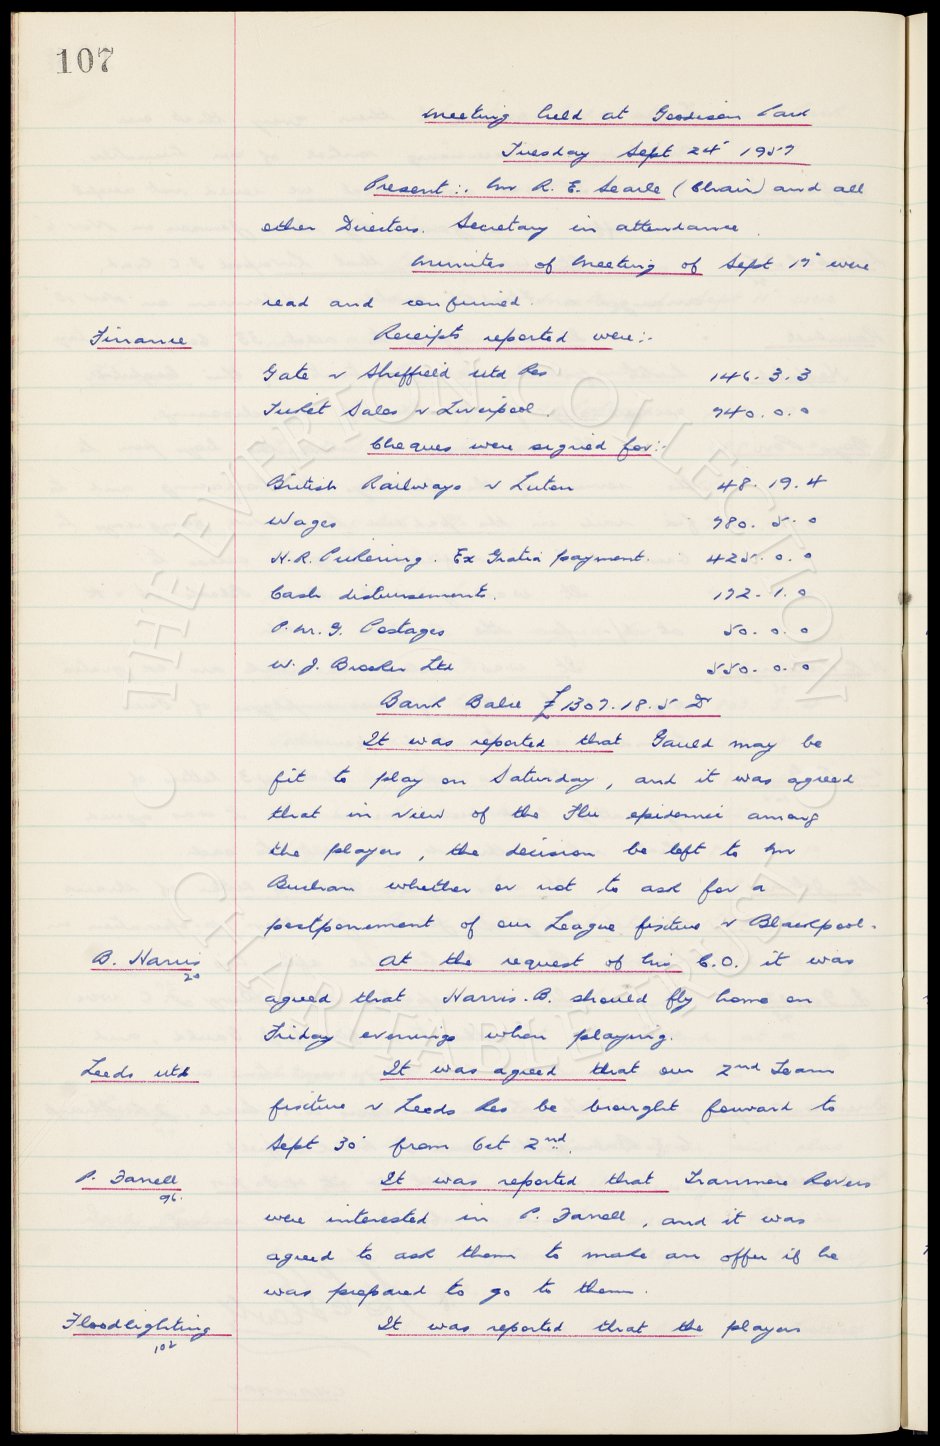 107
Meeting held at Goodison Park
Tuesday Sept 24" 1957
Present:. Mr R. E. Searle (Chair) and all
other Directors. Secretary in attendance.
Minutes of Meeting of Sept 17" were
read and confirmed.
Finance
Receipts reported were:-
Gate v Sheffield Utd Res 146. 3. 3
Ticket Sales v Liverpool. 740. 0. 0
Cheques were signed for:-
British Railways v Luton 48. 19. 4
Wages 780. 5. 0
H.R. Pickering. Ex Gratia payment. 425. 0. 0
Cash disbursements. 172. 1. 0
P.M.G. Postages 50. 0. 0
W. J. Brooker Ltd 550. 0. 0
Bank Balce £1307. 18. 5 Dr
It was reported that Gauld may be
fit to play on Saturday, and it was agreed
that in view of the Flu epidemic among
the players, the decision be left to Mr
Buchan whether or not to ask for a
postponement of our League fixture v Blackpool.
B. Harris
20
At the request of his C.O. it was
agreed that Harris. B. should fly home on
Friday evenings when playing.
Leeds Utd
It was agreed that our 2nd Team
fixture v Leeds Res be brought forward to
Sept 30" from Oct 2nd.
P. Farrell
96.
It was reported that Tranmere Rovers
were interested in P. Farrell, and it was
agreed to ask them to make an offer if he
was prepared to go to them.
Floodlighting
102
It was reported that the players
© THE EVERTON COLLECTION
CHARITABLE TRUST